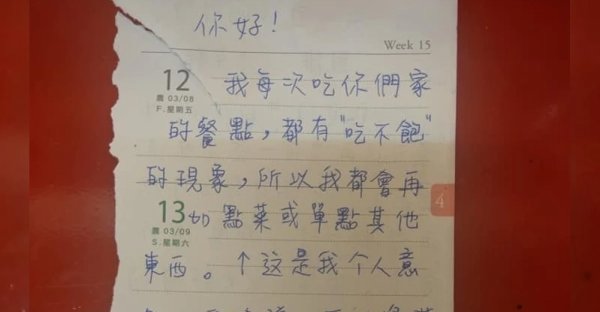 你好！
Week 15
12
農 03/08
F.星期五
我每次吃你們家
的餐點，都有"吃不飽"
的現象，所以我都會再
13
農 03/09
S.星期六
加點菜或單點其他
4
東西。↑這是我个人意